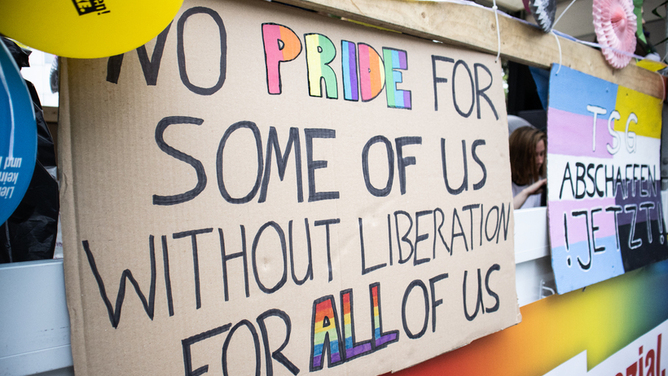 NO PRIDE FOR
SOME OF US
WITHOUT LIBERATION
FOR ALL OF US
TSG
ABSCHAFFEN
!JETZT!